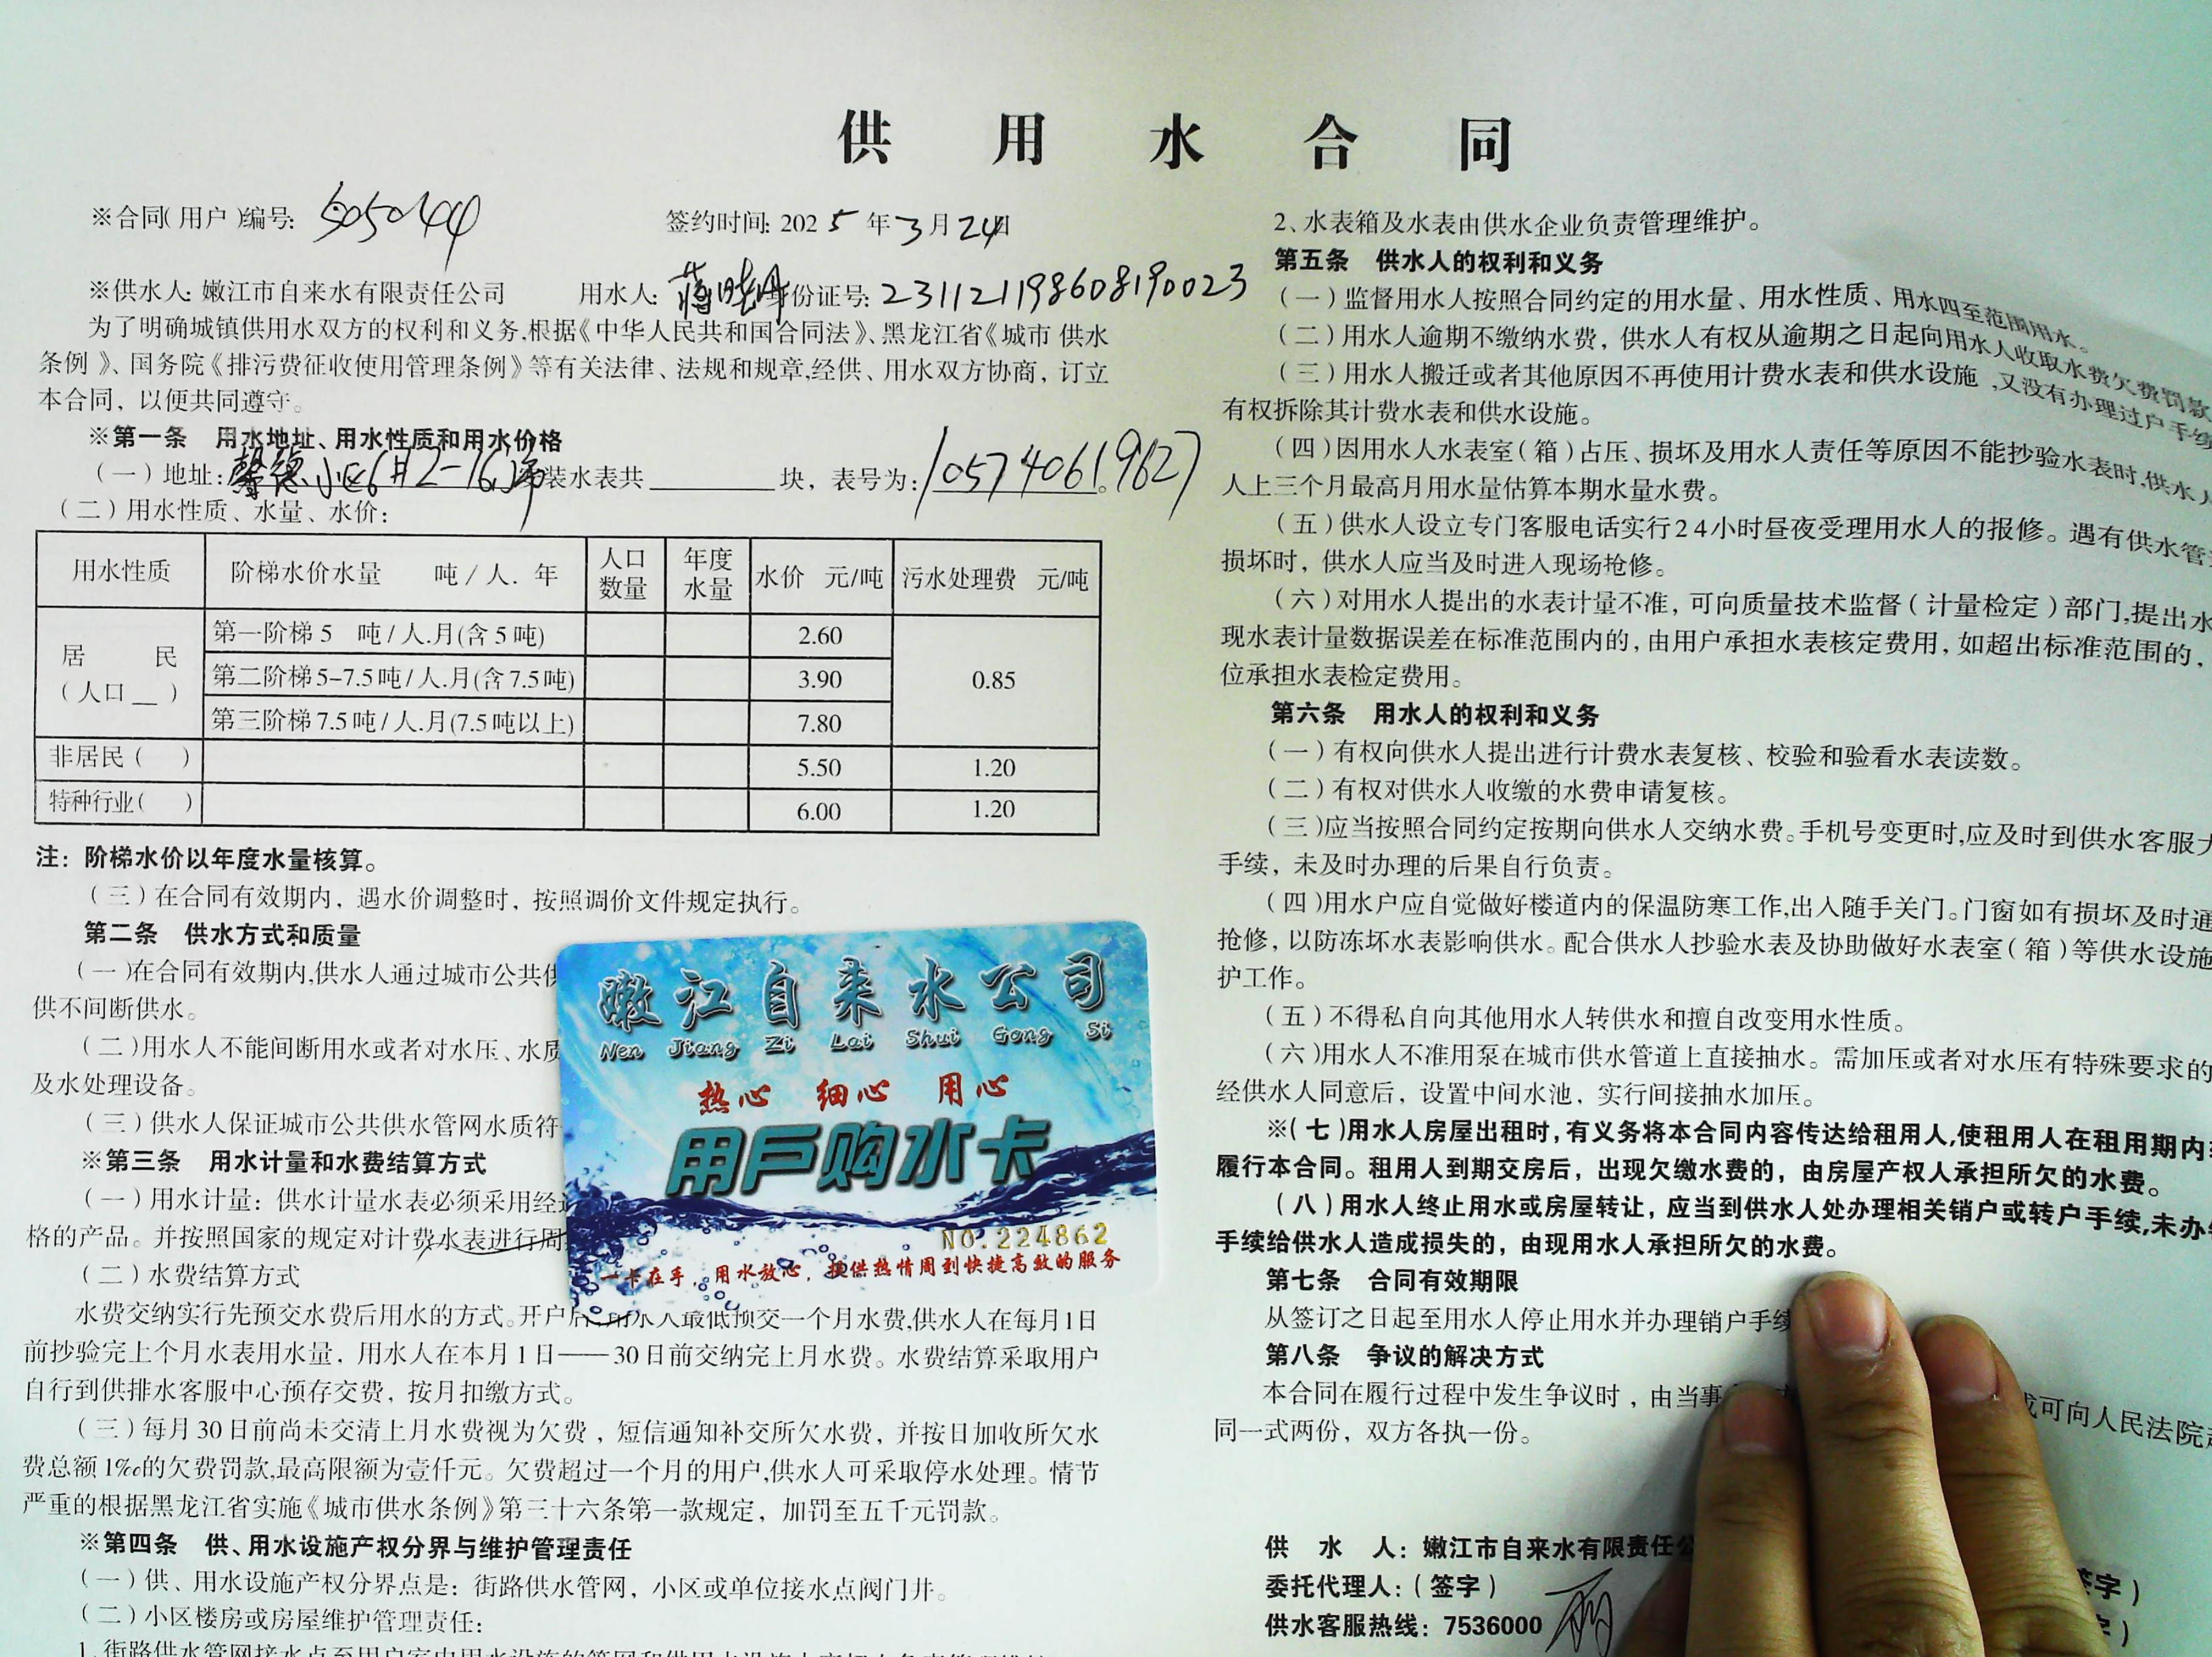 供 用 水 合 同
※合同(用户)编号: 5050144
签约时间: 2025年3月24日
※供水人: 嫩江市自来水有限责任公司 用水人: 蒋晓丹 身份证号: 231121198608190023
为了明确城镇供用水双方的权利和义务,根据《中华人民共和国合同法》、黑龙江省《城市 供水
条例》、国务院《排污费征收使用管理条例》等有关法律、法规和规章,经供、用水双方协商，订立
本合同，以便共同遵守。
※第一条 用水地址、用水性质和用水价格
(一)地址: 馨德小区6#2-16 装水表共 块，表号为: 105740619627
(二)用水性质、水量、水价:
用水性质 阶梯水价水量 吨/人. 年 人口数量 年度水量 水价 元/吨 污水处理费 元/吨
居 民 (人口 ) 第一阶梯 5 吨/人.月(含5吨) 2.60 0.85
第二阶梯5-7.5吨/人.月(含7.5吨) 3.90
第三阶梯7.5吨/人.月(7.5吨以上) 7.80
非居民( ) 5.50 1.20
特种行业( ) 6.00 1.20
注: 阶梯水价以年度水量核算。
(三)在合同有效期内，遇水价调整时，按照调价文件规定执行。
第二条 供水方式和质量
(一)在合同有效期内,供水人通过城市公共供
供不间断供水。
(二)用水人不能间断用水或者对水压、水质
及水处理设备。
(三)供水人保证城市公共供水管网水质符
※第三条 用水计量和水费结算方式
(一)用水计量: 供水计量水表必须采用经
格的产品。并按照国家的规定对计费水表进行周
(二)水费结算方式
水费交纳实行先预交水费后用水的方式。开户后,用水人最低预交一个月水费,供水人在每月1日
前抄验完上个月水表用水量，用水人在本月1日——30日前交纳完上月水费。水费结算采取用户
自行到供排水客服中心预存交费，按月扣缴方式。
(三)每月30日前尚未交清上月水费视为欠费，短信通知补交所欠水费，并按日加收所欠水
费总额1‰的欠费罚款,最高限额为壹仟元。欠费超过一个月的用户,供水人可采取停水处理。情节
严重的根据黑龙江省实施《城市供水条例》第三十六条第一款规定，加罚至五千元罚款。
※第四条 供、用水设施产权分界与维护管理责任
(一)供、用水设施产权分界点是: 街路供水管网，小区或单位接水点阀门井。
(二)小区楼房或房屋维护管理责任:
嫩江自来水公司
Nen Jiang Zi Lai Shui Gong Si
热心 细心 用心
用户购水卡
NO.224862
一卡在手，用水放心，提供热情周到快捷高效的服务
2、水表箱及水表由供水企业负责管理维护。
第五条 供水人的权利和义务
(一)监督用水人按照合同约定的用水量、用水性质、用水四至范围用水。
(二)用水人逾期不缴纳水费，供水人有权从逾期之日起向用水人收取水费欠费罚款
(三)用水人搬迁或者其他原因不再使用计费水表和供水设施,又没有办理过户手续
有权拆除其计费水表和供水设施。
(四)因用水人水表室(箱)占压、损坏及用水人责任等原因不能抄验水表时,供水人
人上三个月最高月用水量估算本期水量水费。
(五)供水人设立专门客服电话实行24小时昼夜受理用水人的报修。遇有供水管
损坏时，供水人应当及时进入现场抢修。
(六)对用水人提出的水表计量不准，可向质量技术监督(计量检定)部门,提出水
现水表计量数据误差在标准范围内的，由用户承担水表核定费用，如超出标准范围的，
位承担水表检定费用。
第六条 用水人的权利和义务
(一)有权向供水人提出进行计费水表复核、校验和验看水表读数。
(二)有权对供水人收缴的水费申请复核。
(三)应当按照合同约定按期向供水人交纳水费。手机号变更时,应及时到供水客服大
手续，未及时办理的后果自行负责。
(四)用水户应自觉做好楼道内的保温防寒工作,出入随手关门。门窗如有损坏及时通
抢修，以防冻坏水表影响供水。配合供水人抄验水表及协助做好水表室(箱)等供水设施
护工作。
(五)不得私自向其他用水人转供水和擅自改变用水性质。
(六)用水人不准用泵在城市供水管道上直接抽水。需加压或者对水压有特殊要求的
经供水人同意后，设置中间水池，实行间接抽水加压。
※(七)用水人房屋出租时,有义务将本合同内容传达给租用人,使租用人在租用期内
履行本合同。租用人到期交房后，出现欠缴水费的，由房屋产权人承担所欠的水费。
(八)用水人终止用水或房屋转让，应当到供水人处办理相关销户或转户手续,未办
手续给供水人造成损失的，由现用水人承担所欠的水费。
第七条 合同有效期限
从签订之日起至用水人停止用水并办理销户手续
第八条 争议的解决方式
本合同在履行过程中发生争议时，由当事 或可向人民法院
同一式两份，双方各执一份。
供 水 人: 嫩江市自来水有限责任公
委托代理人:(签字) 签字)
供水客服热线: 7536000 字)